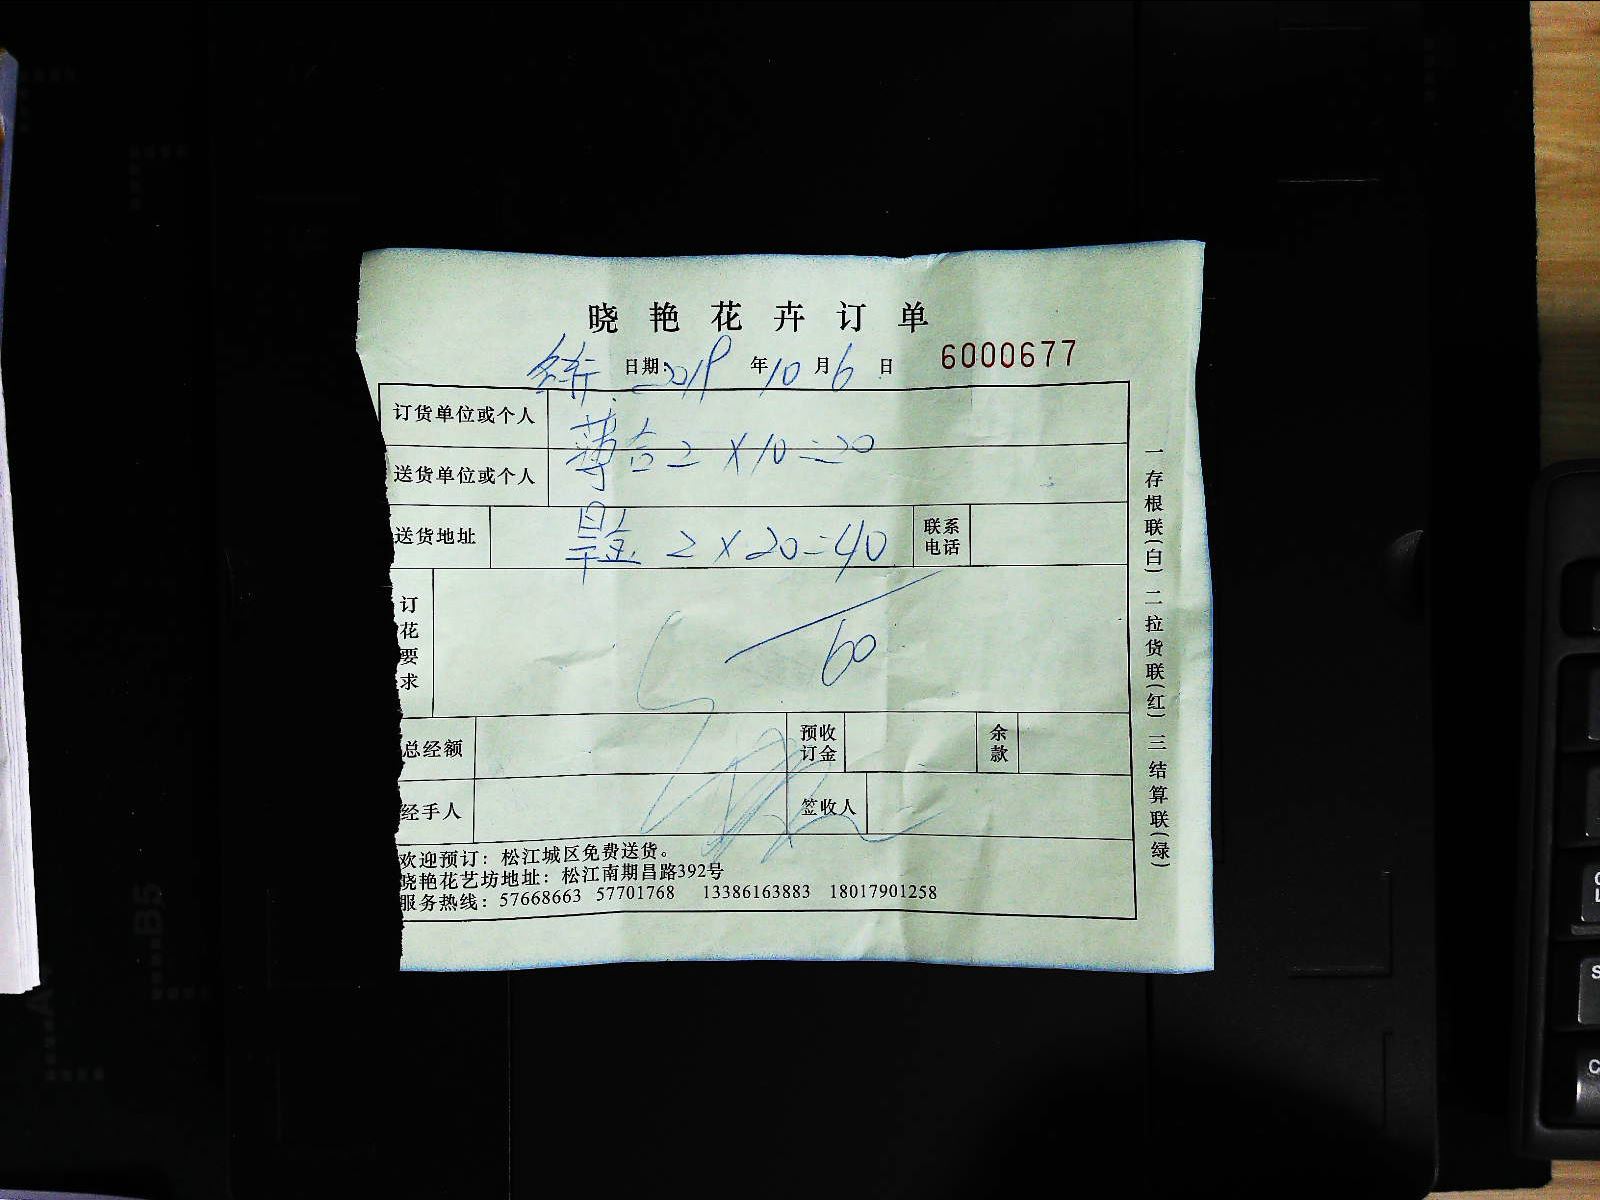 晓艳花卉订单
日期 2019 年 10 月 6 日 6000677
订货单位或个人
送货单位或个人 薄合 2 X 10 = 20
送货地址 2 X 20 = 40 联系电话
订花要求 60
总经额 预收订金 余款
经手人 签收人
欢迎预订：松江城区免费送货。
晓艳花艺坊地址：松江南期昌路392号
服务热线：57668663 57701768 13386163883 18017901258
一存根联(白) 二拉货联(红) 三结算联(绿)
B5